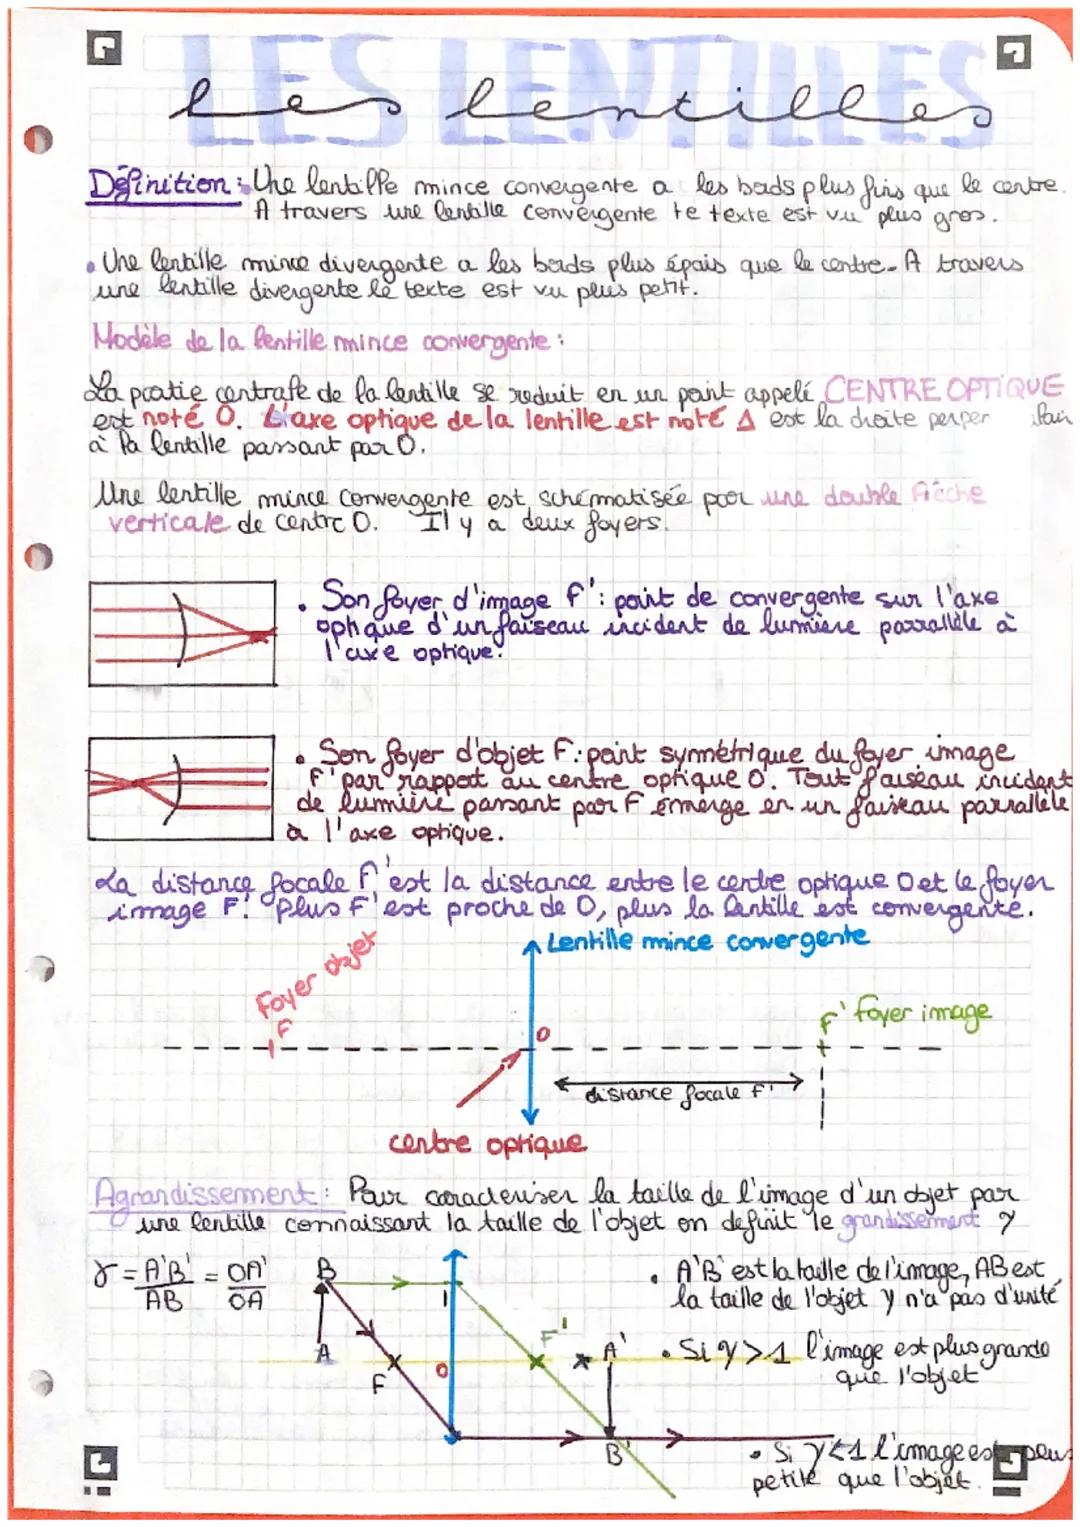 LES LENTILLES
Les lentilles
Définition : Une lentille mince convergente a les bords plus fins que le centre.
A travers une lentille convergente le texte est vu plus gros.
• Une lentille mince divergente a les bords plus épais que le centre. A travers
une lentille divergente le texte est vu plus petit.
Modèle de la lentille mince convergente :
La partie centrale de la lentille se reduit en un point appelé CENTRE OPTIQUE
est noté O. L'axe optique de la lentille est noté Δ est la droite perper
à la lentille passant par O.
Une lentille mince convergente est schématisée par une double flèche
verticale de centre O. Il y a deux foyers.
• Son foyer d'image F' : point de convergente sur l'axe
optique d'un faisceau incident de lumière parrallèle à
l'axe optique.
• Son foyer d'objet F : point symmétrique du foyer image
F' par rapport au centre optique O. Tout faiseau incident
de lumière passant par F émerge en un faiseau parrallèle
à l'axe optique.
La distance focale f' est la distance entre le centre optique O et le foyer
image F'. Plus F' est proche de O, plus la lentille est convergente.
Lentille mince convergente
Foyer objet
F
O
F' foyer image
distance focale F'
centre optique
Agrandissement : Pour caracteriser la taille de l'image d'un objet par
une lentille connaissant la taille de l'objet on definit le grandissement γ
γ = A'B' = OA'
AB OA
B
I
A
F
O
F'
A'
B'
• A'B' est la taille de l'image, AB est
la taille de l'objet γ n'a pas d'unité
• Si γ > 1 l'image est plus grande
que l'objet
• Si γ < 1 l'image est plus
petite que l'objet.